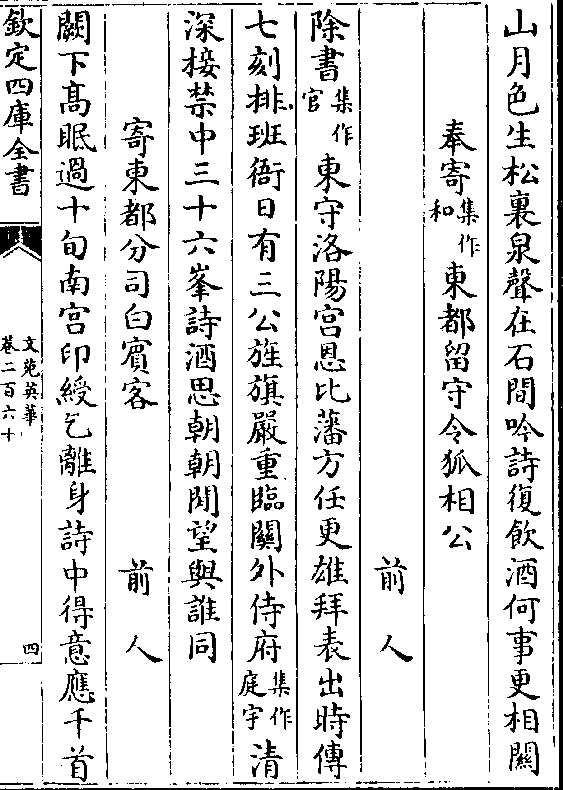 山月色生松裏泉聲在石間吟詩復飲酒何事更相關
奉寄集作和東都留守令狐相公
前人
除書集作官東守洛陽宫恩比藩方任更雄拜表出時傳
七刻排班衙日有三公旌旗嚴重臨關外侍府集作庭宇清
深接禁中三十六峯詩酒思朝朝閒望與誰同
寄東都分司白賓客
前人
闕下髙眠過十旬南宫印綬乞離身詩中得意應千首
欽定四庫全書
文苑英華
卷二百六十
四